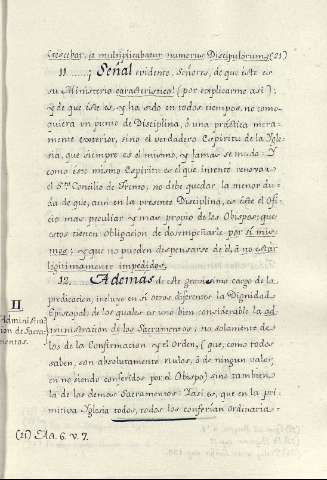 crescebat, et multiplicabatur numerus Discipulorum (21)
11......¡ Señal evidente, Señores, de que éste es
su Ministerio característico! (por explicarme así);
y de que éste es, y ha sido en todos tiempos, no como-
quiera un punto de Disciplina, ó una práctica mera-
mente exterior, sino el verdadero Espíritu de la Igle-
sia, que siempre es el mismo, y jamas se muda. Y
como este mismo Espíritu es el que intentó renovar
el Sto. Concilio de Trento, no debe quedar la menor du-
da de que, aun en la presente Disciplina, es este el Ofi-
cio mas peculiar y mas propio de los Obispos; que
estos tienen obligacion de desempeñarle por sí mis-
mos; y que no pueden dispensarse de él, á no estar
legitimamente impedidos.
12. Ademas de este gravísimo cargo de la
predicacion, incluye en sí otros diferentes la Dignidad
Episcopal; de los quales es uno bien considerable la ad
II
Administra-
ion de Sacra-
mentos.
ministracion de los Sacramentos; no solamente de
los de la Confirmacion y el Orden, (que, como todos
saben, son absolutamente nulos, ó de ningun valor,
en no siendo conferidos por el Obispo) sino tambien
la de los demas Sacramentos. Y así es, que en la pri-
mitiva Iglesia todos, todos los conferían ordinaria-
(21) Act. 6. v. 7.